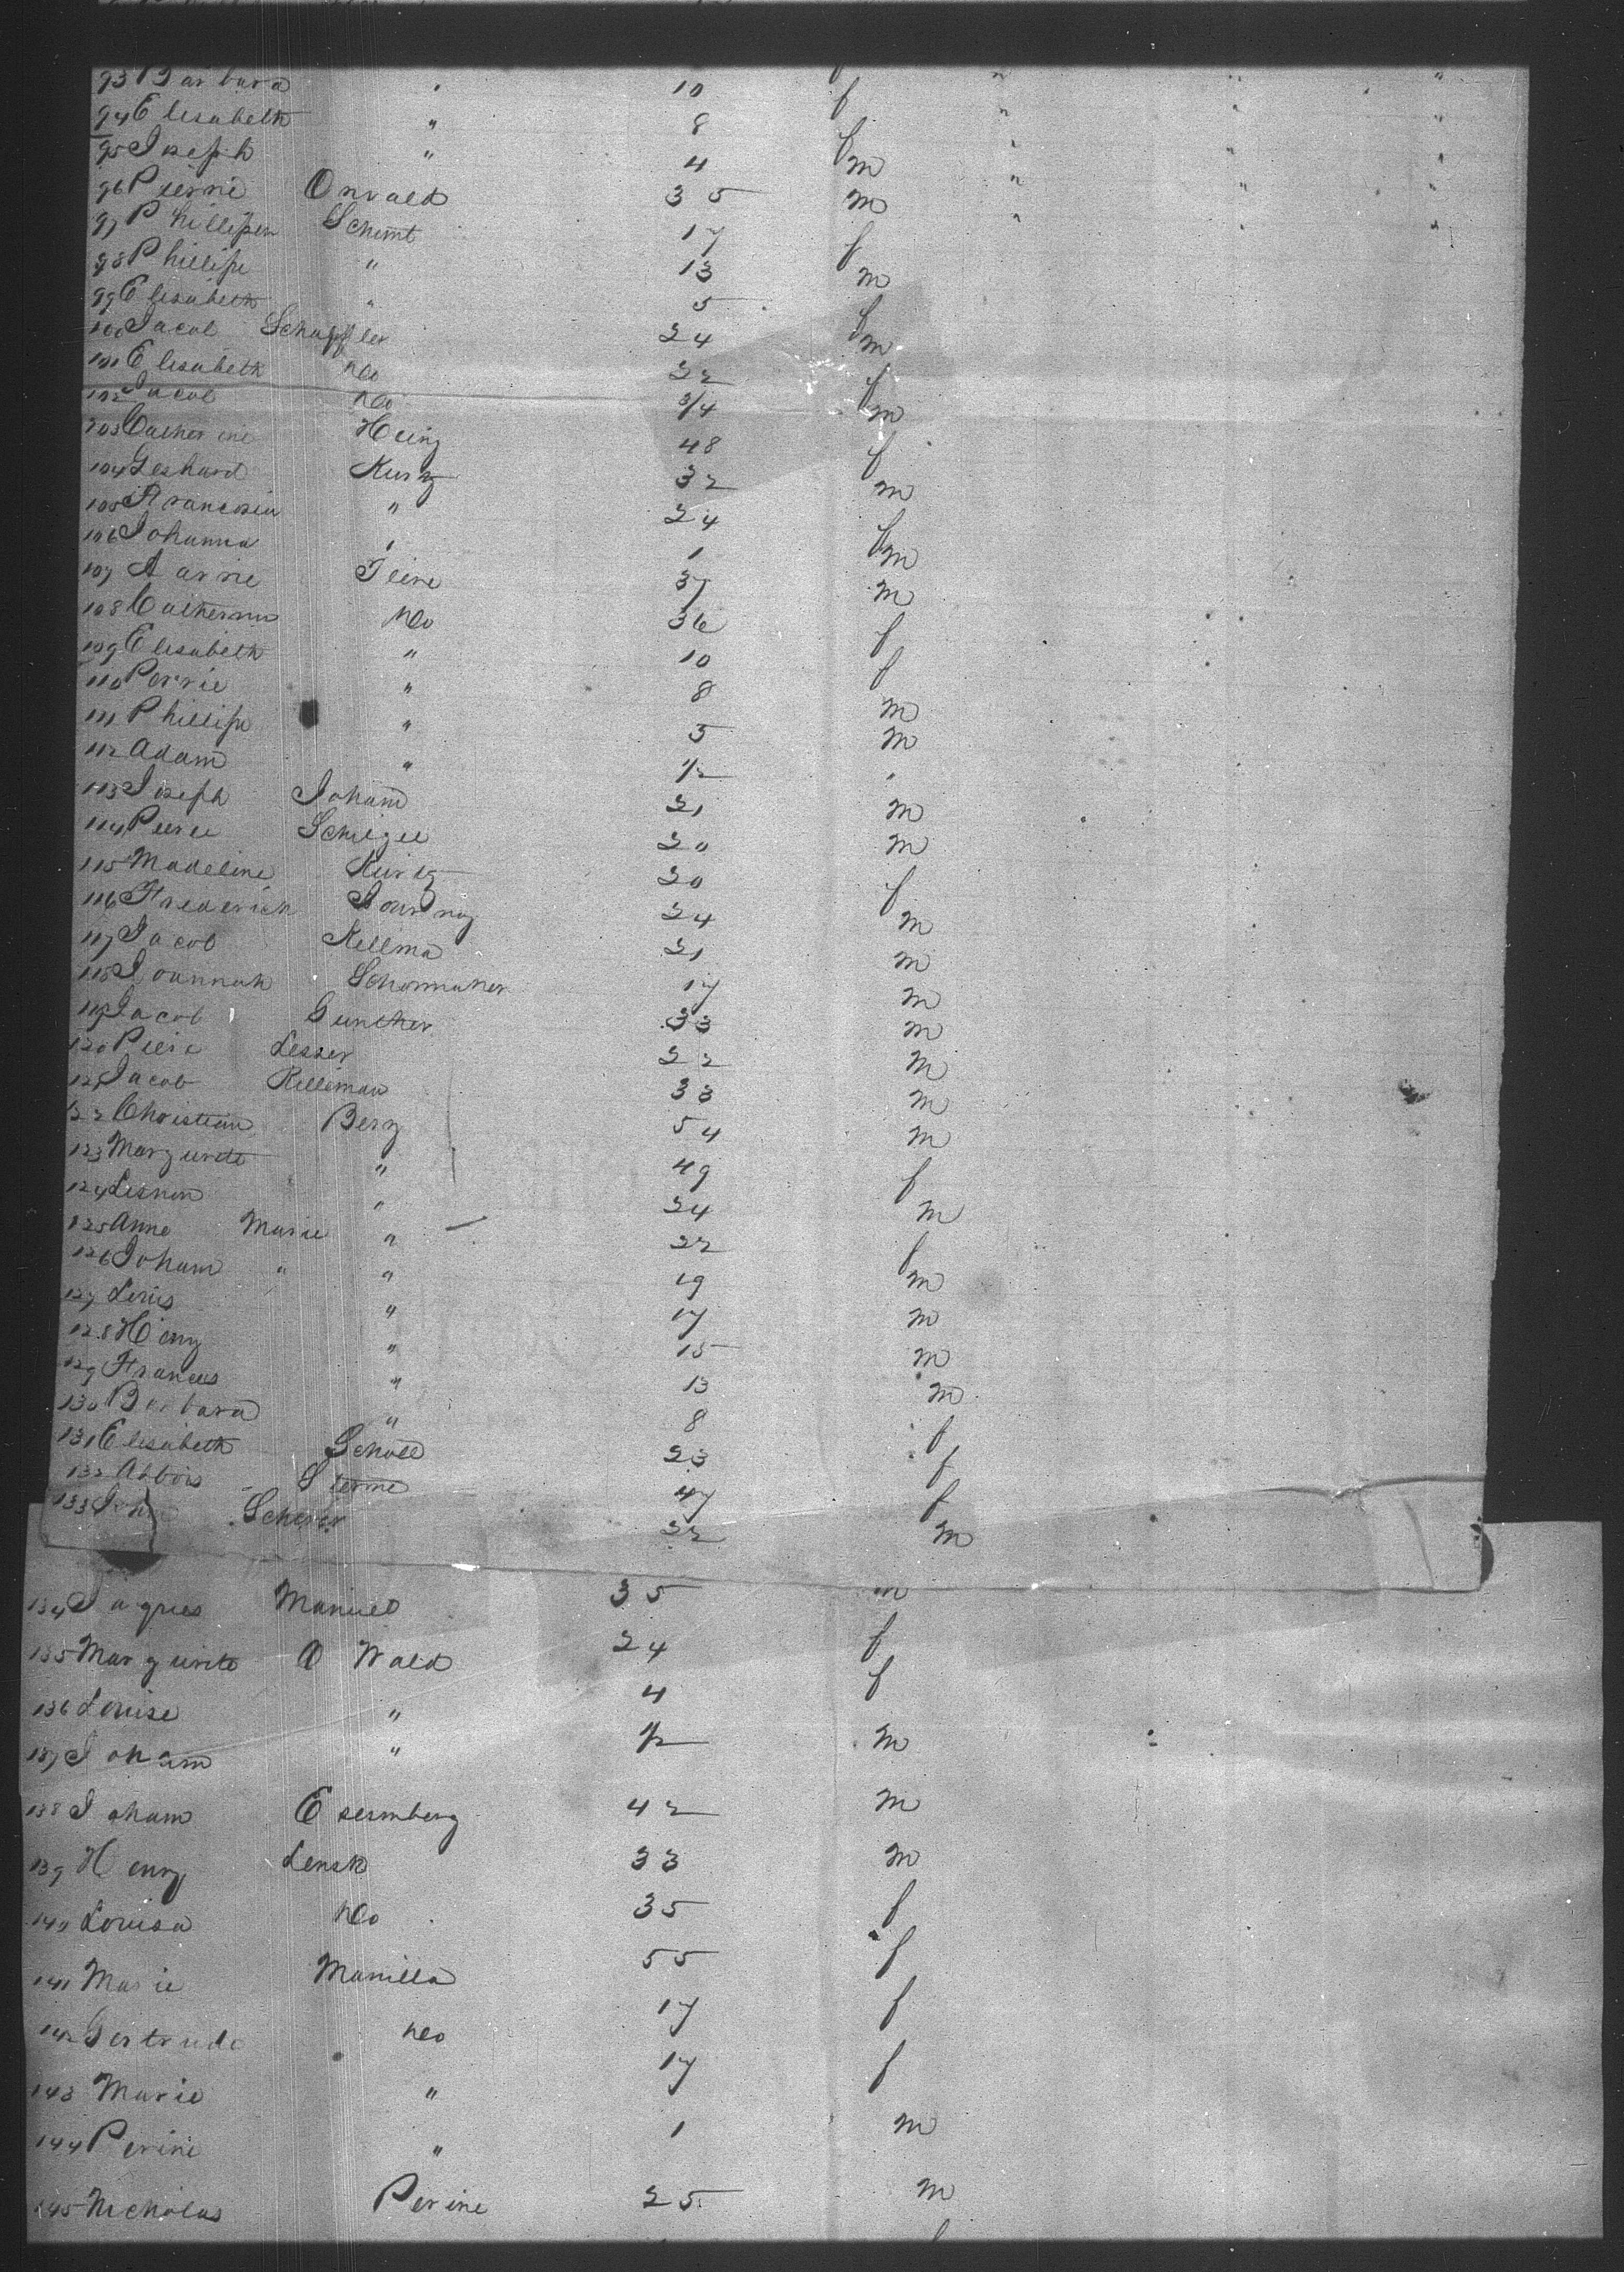 93 Barbara " 10 f " " "
94 Elisabeth " 8 f " "
95 Joseph " 4 m " " "
96 Pierre Onvald 35 m " "
97 Phillipen Schimt 17 f " "
98 Phillipe " 13 m
99 Elisabeth " 5 f
100 Jacob Schaffler 24 m
101 Elisabeth Do 22 f
102 Jacob Do 3/4 m
103 Catherine Heing 48 f
104 Geshard Kurtz 32 m
105 Francosia " 24 f
106 Johanna " 1 m
107 Aarrie Teine 37 m
108 Catherine Do 36 f
109 Elisabeth " 10 f
110 Perrie " 8 m
111 Phillipe " 5 m
112 Adam " 1/2 "
113 Joseph Joham 21 m
114 Pierre Schlegel 20 m
115 Madeline Kurtz 20 f
116 Frederick 24 m
117 Jacob Kellma 21 m
118 Joannah Schommaker 17 m
119 Jacob Gunther 33 m
120 Piere Lesser 22 m
121 Jacob Killiman 33 m
122 Christian Berg 54 m
123 Margurete " 49 f
124 " 24 m
125 Anne Marie " 22 f
126 Joham " " 19 m
127 Louis " 17 m
128 Heny " 15 m
129 Frances " 13 m
130 Barbara " 8 f
131 Elisabeth Scholl 23 f
132 Sterne 47 f
133 John Scherer 32 m
134 Jaques Manuel 35 m
135 Margurete O Wald 24 f
136 Louise " 4 f
137 Joham " 1/2 m
138 Joham Esermberg 42 m
139 Henry Lensk 33 m
140 Louisa Do 35 f
141 Marie Manilla 55 f
142 Gertrude Do 17 f
143 Marie " 17 f
144 Perine " 1 m
145 Nicholas Perine 25 m